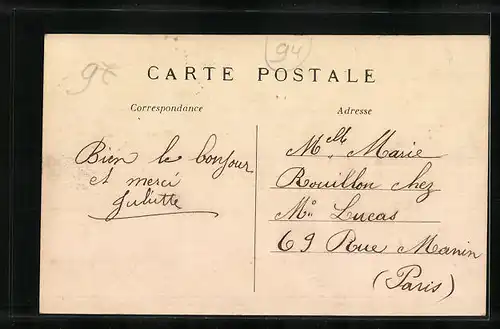 9€
94
CARTE POSTALE
Correspondance
Adresse
Bien le bonjour
et merci
Juliette
Melle Marie
Rouillon chez
Mr Lucas
69 Rue Manin
(Paris)